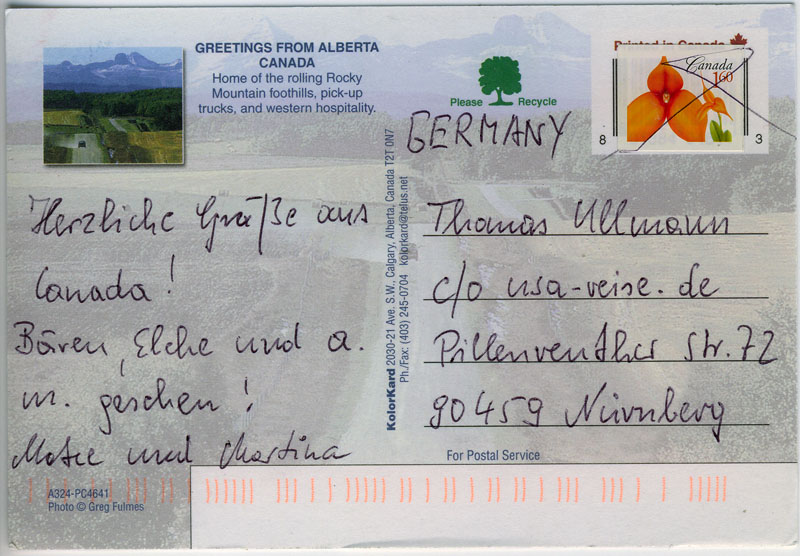 GREETINGS FROM ALBERTA
CANADA
Home of the rolling Rocky
Mountain foothills, pick-up
trucks, and western hospitality.
Please Recycle
Printed in Canada
Canada
160
8 3
GERMANY
Herzliche Grüße aus
Canada!
Bären, Elche und a.
m. gesehen!
und Martina
KolorKard 2030-21 Ave. S.W., Calgary, Alberta, Canada T2T 0N7
Ph./Fax: (403) 245-0704 kolorkard@telus.net
Thomas Ullmann
c/o usa-reise.de
Str. 72
90459 Nürnberg
For Postal Service
A324-PC4641
Photo © Greg Fulmes